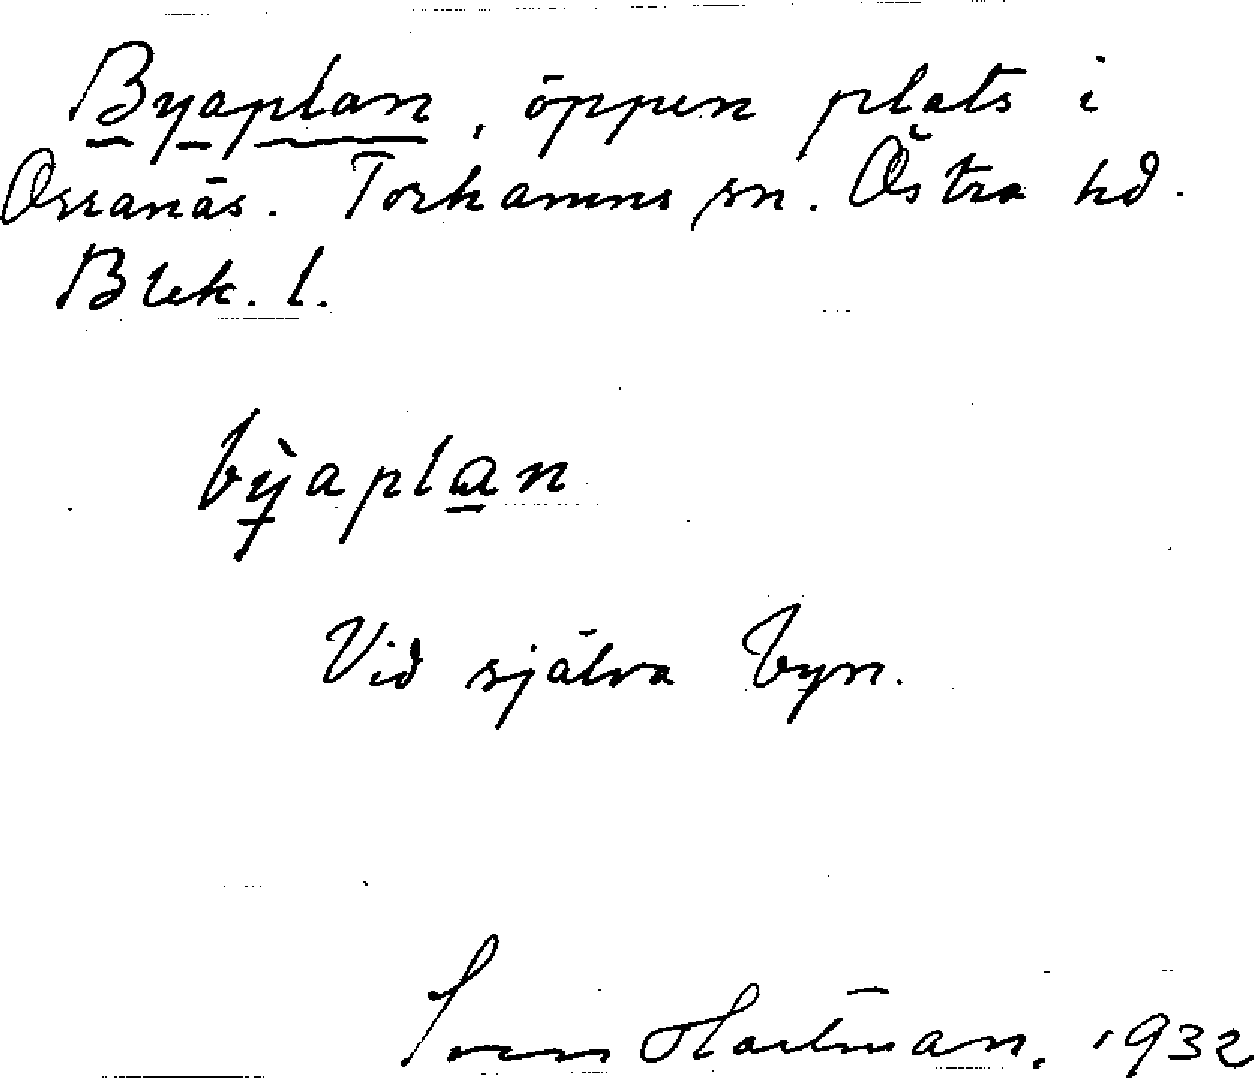 Byaplan, öppen plats i
Ossanäs. Torhamns sn. Östra hd.
Blek. l.
bỳaplan
Vid själva byn.
Sven Hartman. 1932